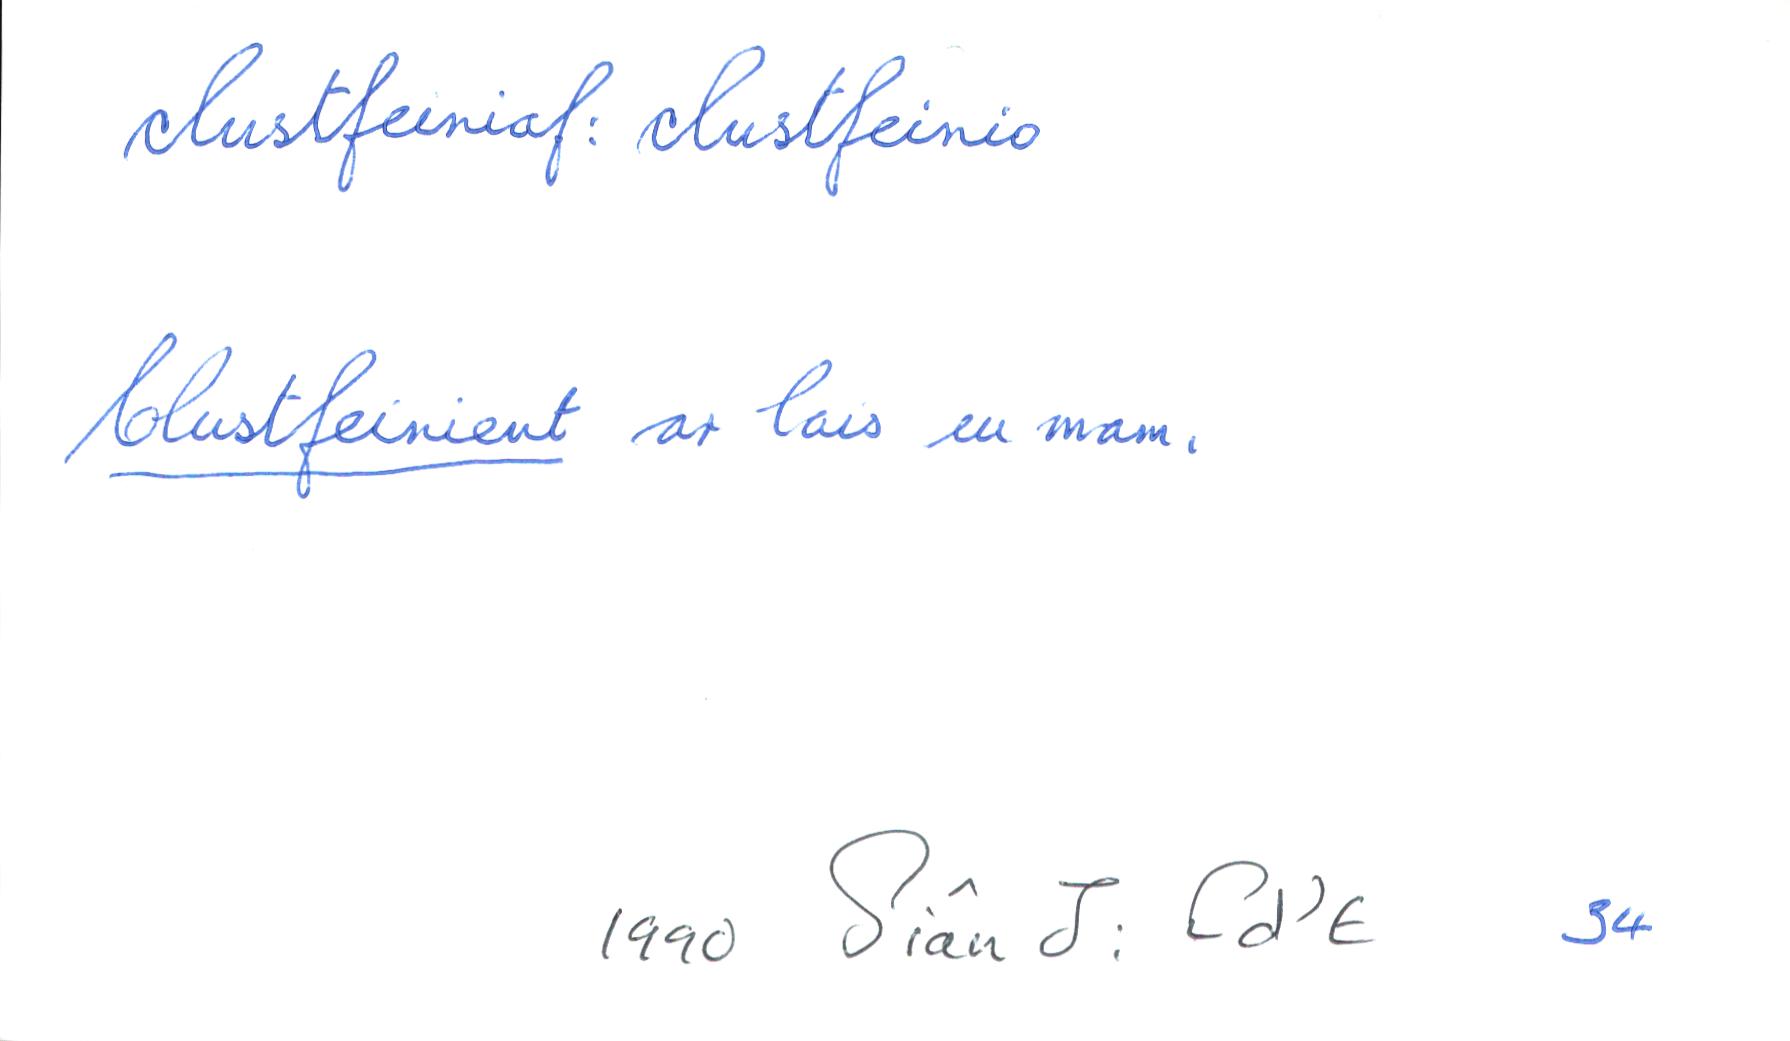 clustfeiniaf: clustfeinio
Clustfeinient ar lais eu mam.
1990 Siân J: Cd'E 34